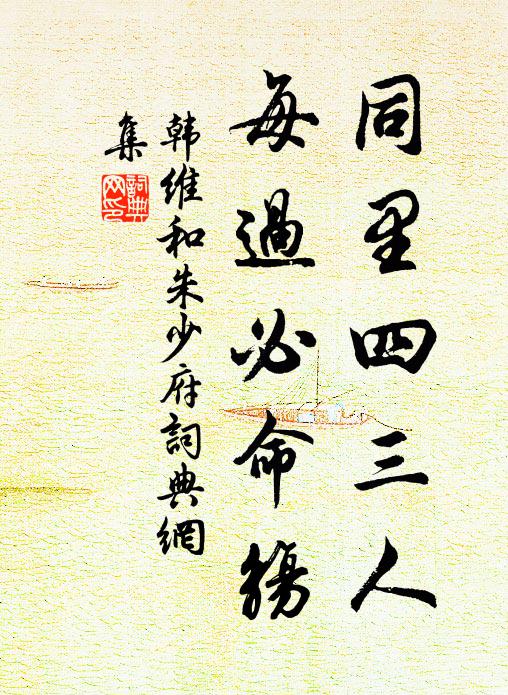 同里四三人
每過必命觴
韩维和朱少府詞典網
集
詞典
网印